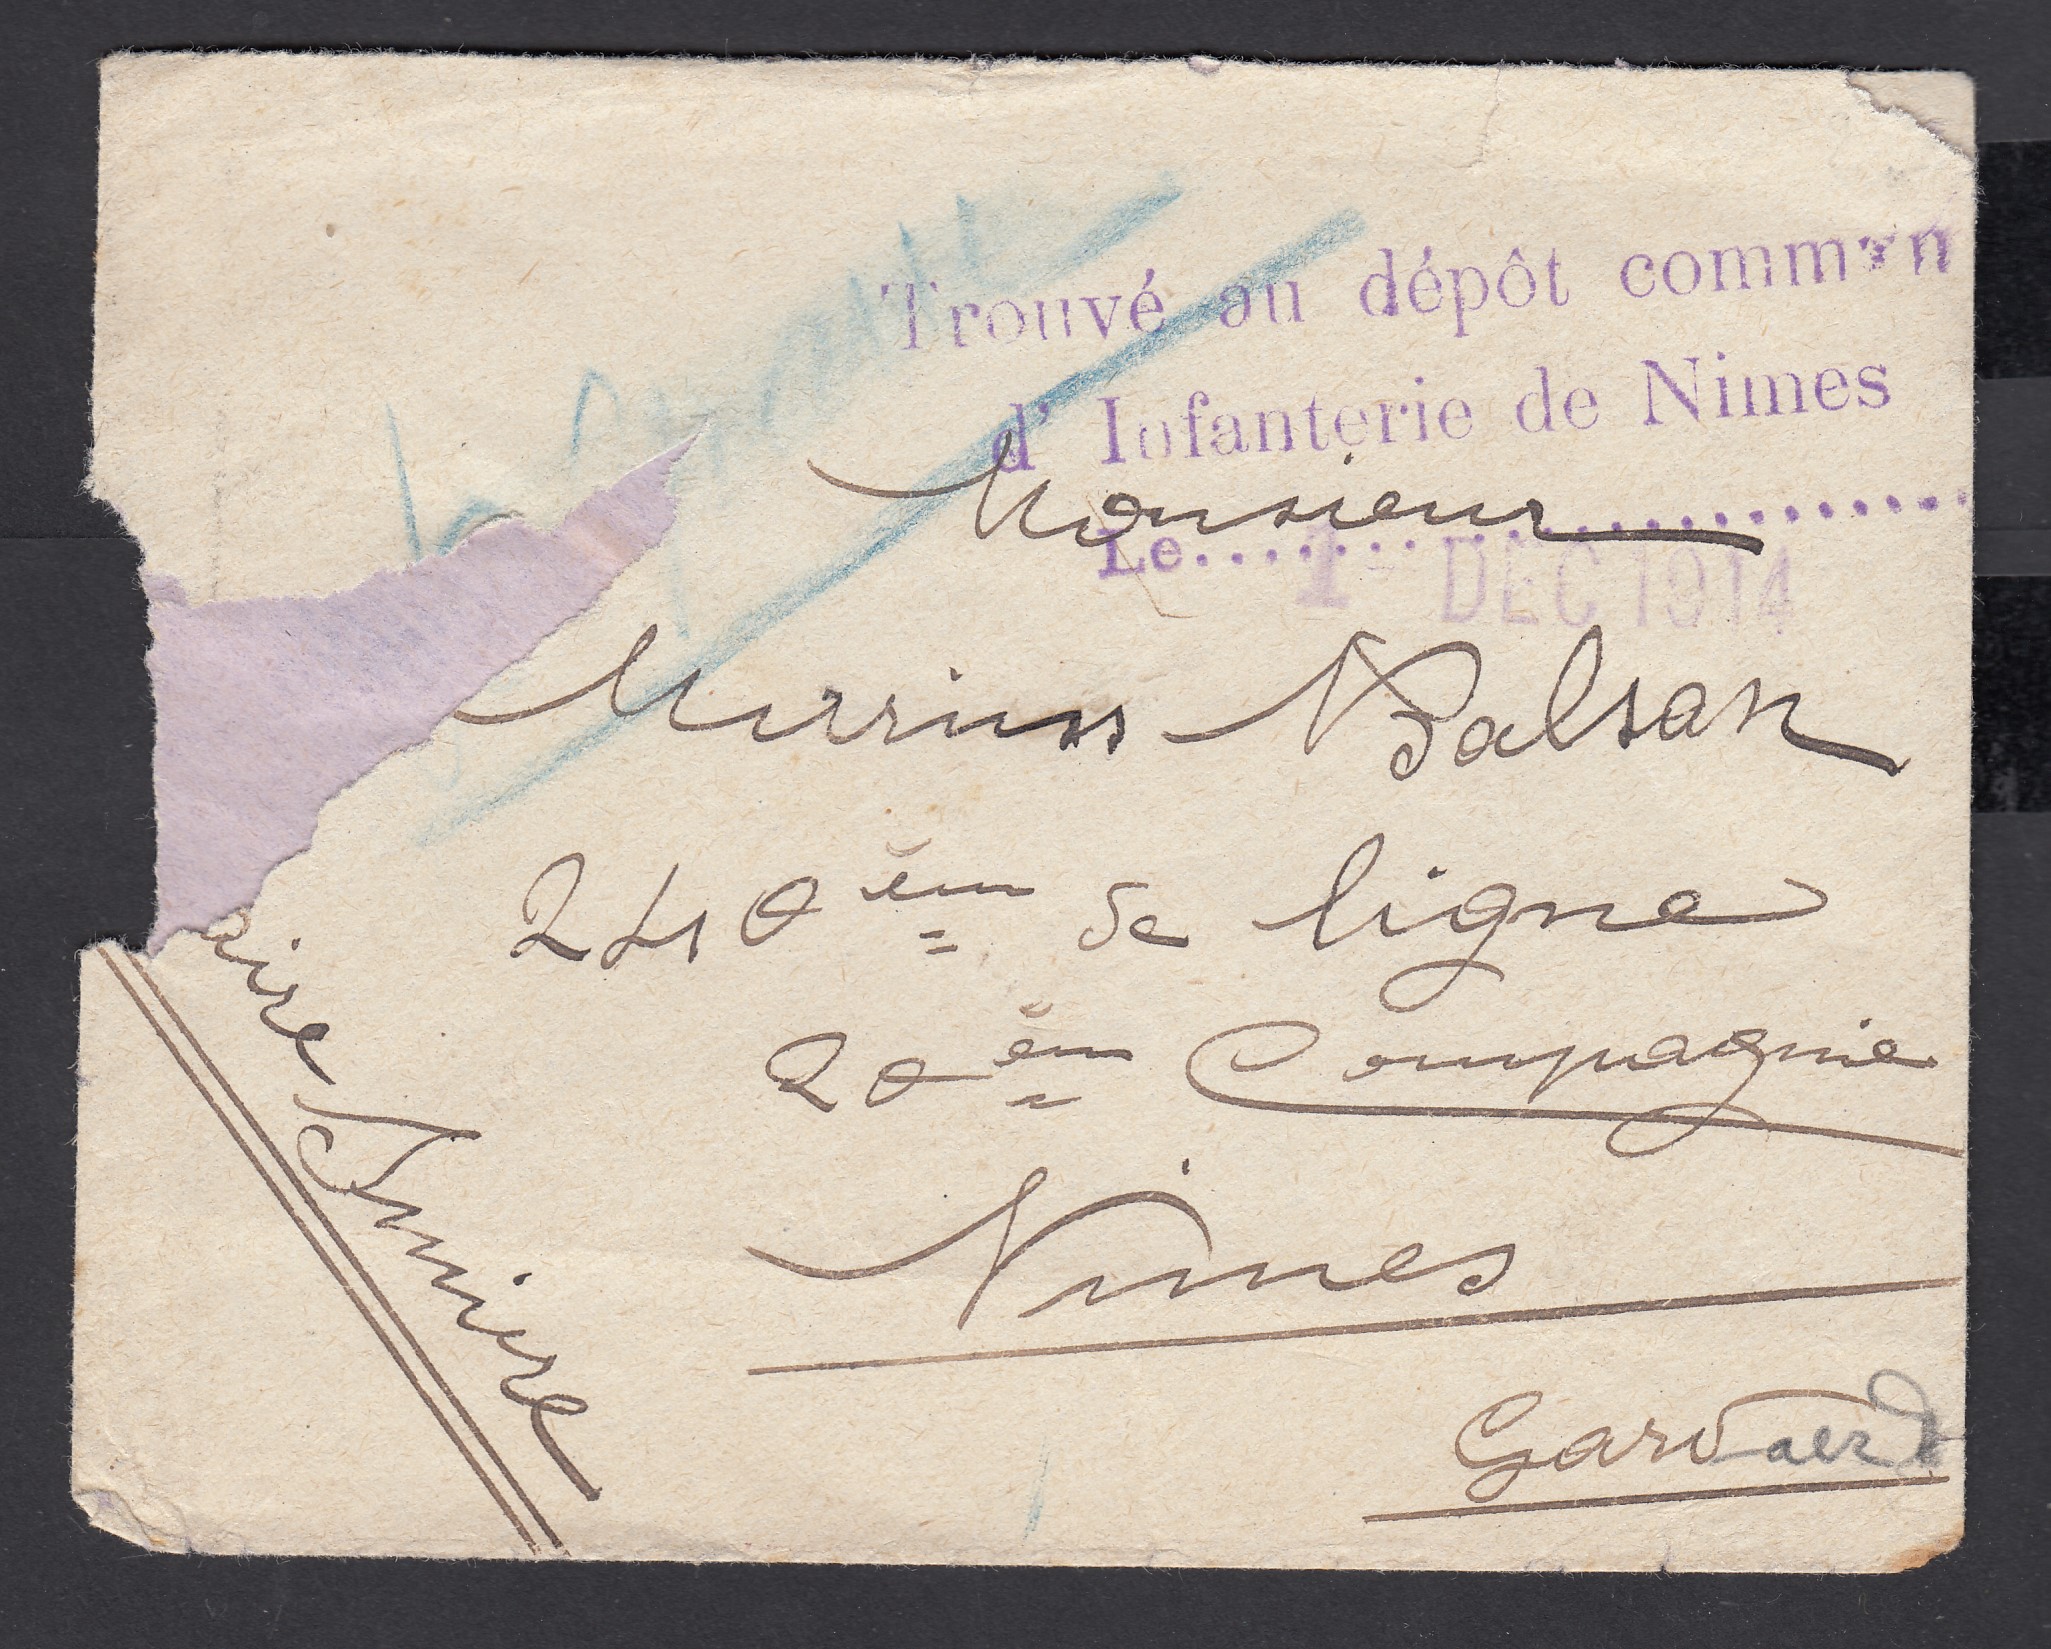 Trouvé au dépôt commun
d'Infanterie de Nimes
Le.... 1 DEC 1914
Monsieur
Marius Balsan
240ème de ligne
20ème Compagnie
Nimes
Gard